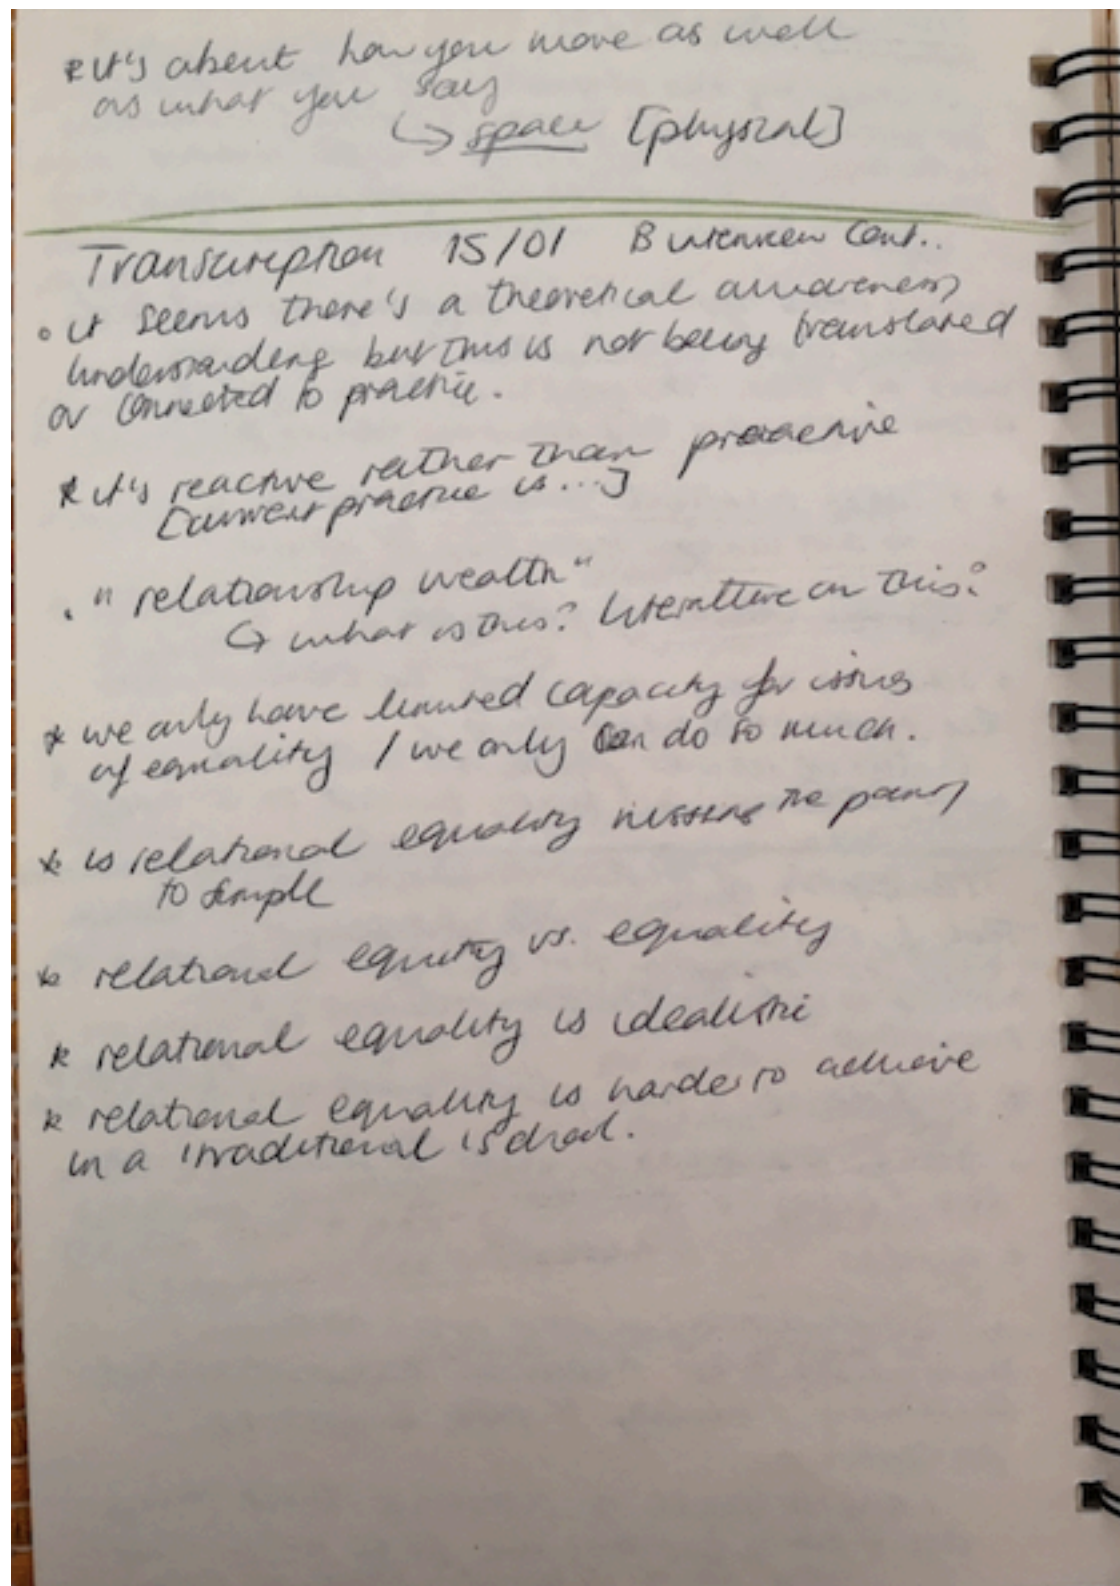 * it's about how you move as well
as what you say
↳ space [physical]
Transcription 15/01 B interview Cont..
• it seems there's a theoretical awareness
understanding but this is not being translated
or connected to practice.
* it's reactive rather than proactive
[current practice is...]
. "relationship wealth"
↳ what is this? Literature on this?
* we only have limited capacity for issues
of equality / we only can do so much.
* is relational equality missing the point
to simple
* relational equity vs. equality
* relational equality is idealistic
* relational equality is harder to achieve
in a traditional school.